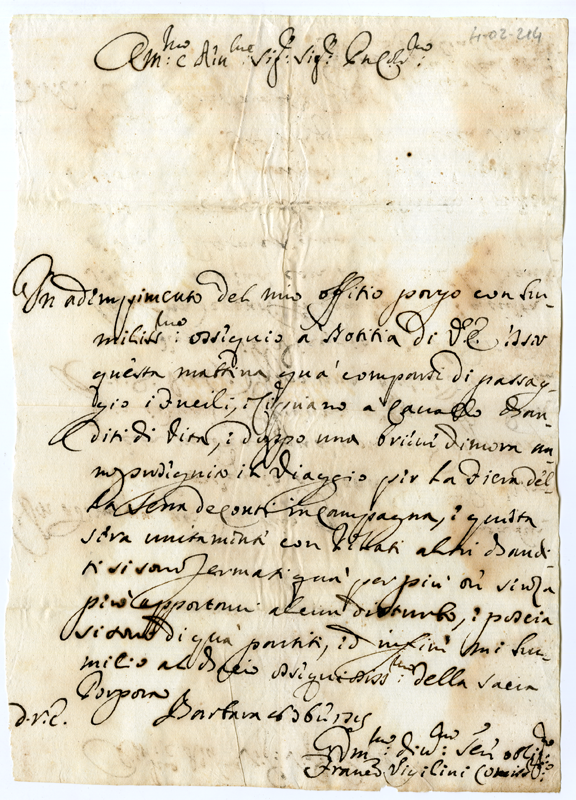 H-02-214
Em:mo e Rev:mo Sig:r Sig:r
In adimpimento del mio offitio porgo con hu-
miliss:mo ossequio a Notitia di V.E. esser
questa mattina quà comparsi di passag-
gio i e Cipriano a Cavallo Ban-
diti di Vita, e doppo una breve dimora
il Viaggio per la Fiera del-
la Serra de Conti in Campagna, e questa
sera unitamente con altri Bandi-
ti si sono fermati quà per più ore senza
però apportare alcun disturbo, e poscia
si sono di quà partiti, ed infine mi hu-
milio al Bacio ossequiosiss:mo della Sacra
Porpora
D.V.E. Barbara
Um:mo Div:mo Ser: obli:mo
Fran:co Vigilini Comiss: